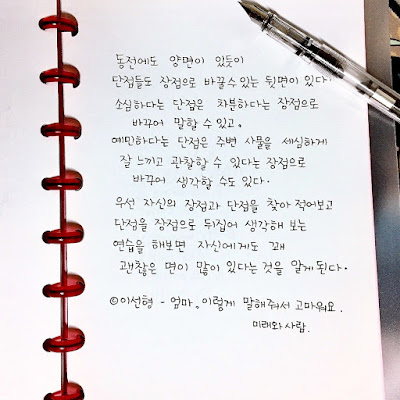 동전에도 양면이 있듯이
단점들도 장점으로 바꿀수 있는 뒷면이 있다.
소심하다는 단점은 차분하다는 장점으로
바꾸어 말할 수 있고,
예민하다는 단점은 주변 사물을 세심하게
잘 느끼고 관찰할 수 있다는 장점으로
바꾸어 생각할 수도 있다.
우선 자신의 장점과 단점을 찾아 적어보고
단점을 장점으로 뒤집어 생각해 보는
연습을 해보면 자신에게도 꽤
괜찮은 면이 많이 있다는 것을 알게 된다.
©이선형 - 엄마, 이렇게 말해줘서 고마워요.
미래와사람.